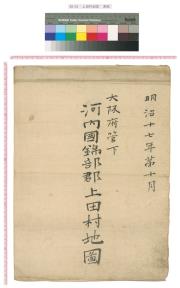 明治十七年第十月
大阪府管下
河内國錦部郡上田村地圖